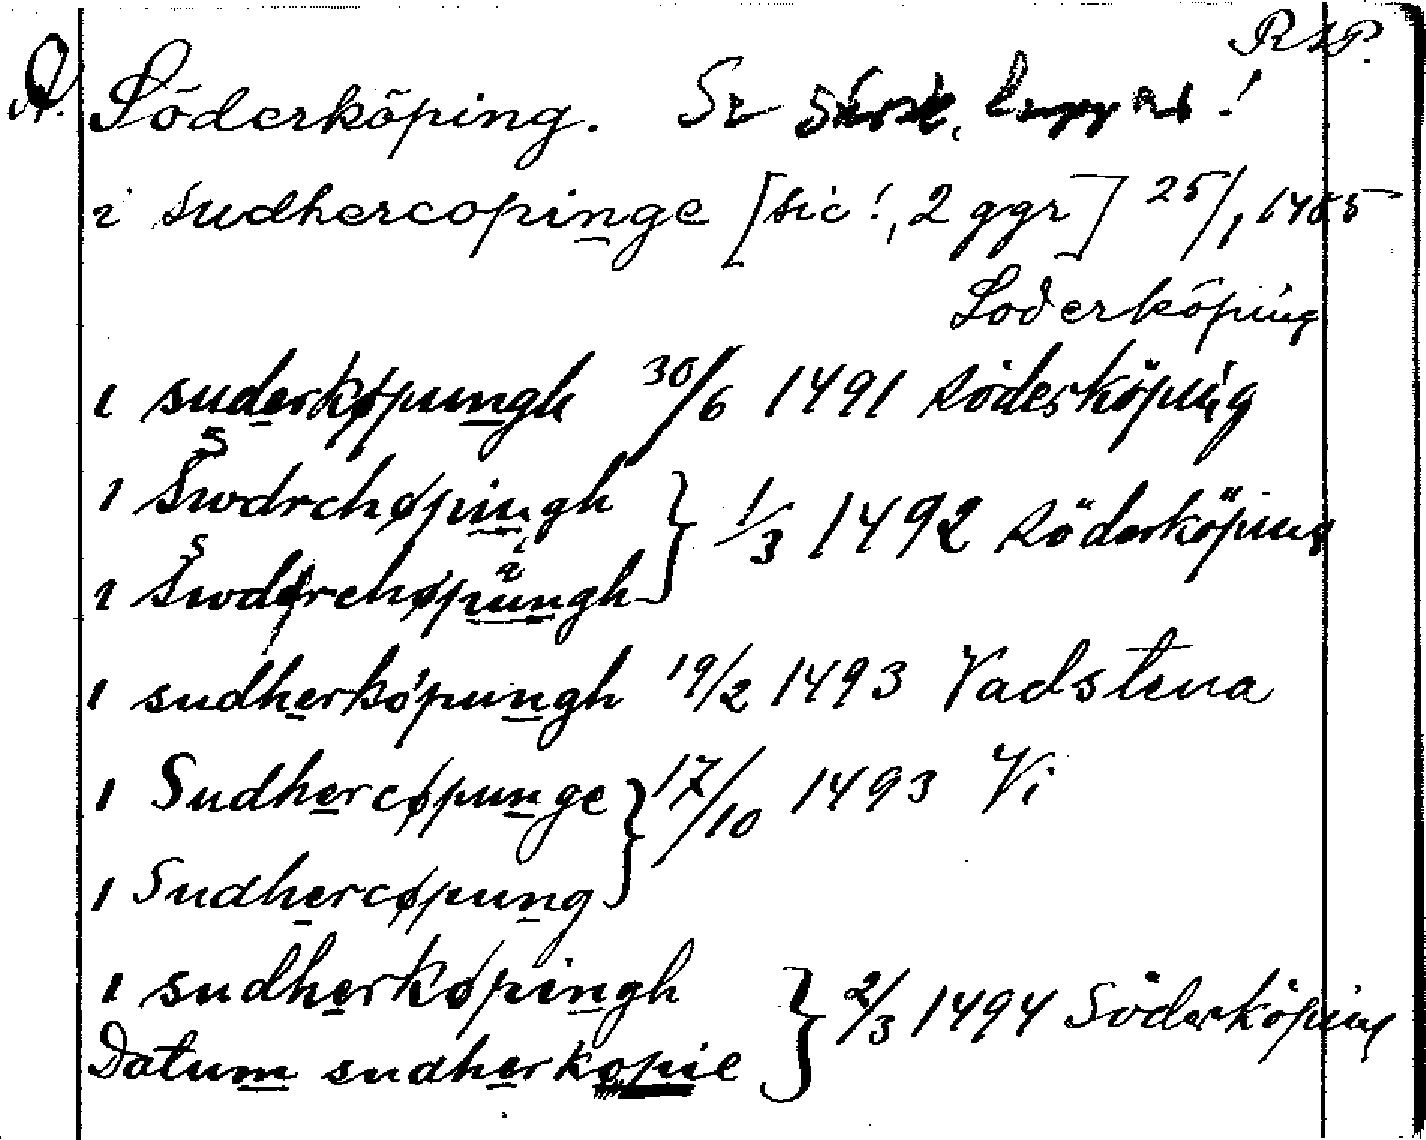 RAP.
Ö. Söderköping. Se särsk. lappar!
i sudhercopinge [sic!, 2 ggr] 25/1 1485
Söderköping
i suderkøpungh 30/6 1491 Söderköping
i Swdrchøpingh } 1/3 1492 Söderköping
i Swdørchøpungh
i sudherköpungh 19/2 1493 Vadstena
i Sudhercøpunge } 17/10 1493 Vi
i Sudhercøpung
i sudherkøpingh } 2/3 1494 Söderköping
Datum sudherkopie